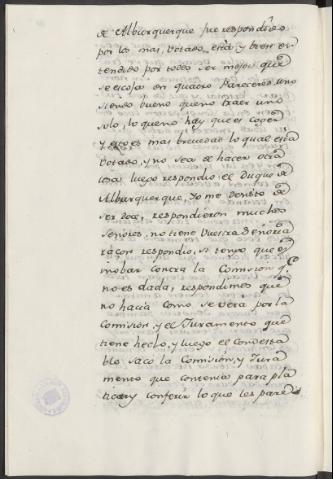 de Alburquerque fue respondido
por los mas, votado está, y bien en
tendido por todos ser mejor que
se escoja en quatro Pareceres uno
siendo bueno que no traer uno
solo, lo que no hay que es coger
y esto es mas brevedad lo qual está
votado, y no sea de hacer otra
cosa luego respondio el Duque de
Alburquerque, Yo me vendito de
ser dos, respondieron muchos
Señores, no tiene Vuestra Señoria
razon respondio, si tengo que es
mobar contra la Comision q.e
no es dada, respondimos que
no hacia como se vera por la
Comision, y el Juramento que
tiene hecho, y luego el Condesta
ble saco la Comision, y Jura
mento que contenia para pla
ticar y conferir lo que les pare